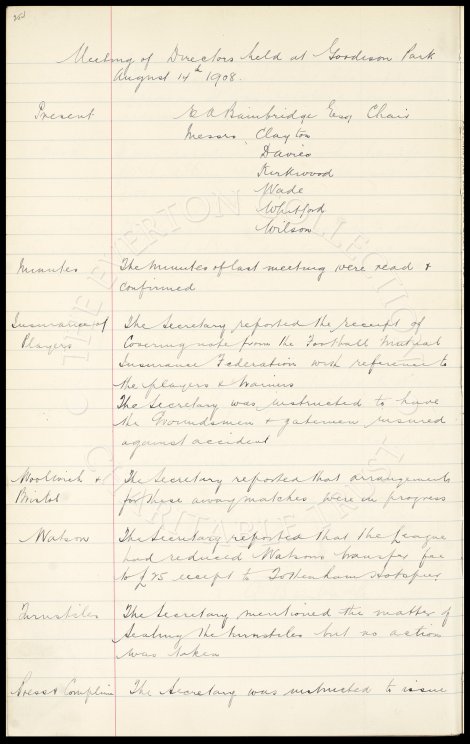 Meeting of Directors held at Goodison Park
August 14th 1908.
Present
E A Bainbridge Esq Chair
Messrs Clayton
Davies
Kirkwood
Wade
Whitford
Wilson
Minutes
The Minutes of last meeting were read &
confirmed
Insurance of
Players
The Secretary reported the receipt of
Covering note from the Football Mutual
Insurance Federation with reference to
the players & trainers
The Secretary was instructed to have
the Groundsmen & gatemen insured
against accident
Woolwich &
Bristol
The Secretary reported that arrangements
for these away matches were in progress
Watson
The Secretary reported that the League
had reduced Watson's transfer fee
to £75 except to Tottenham Hotspur
Turnstiles
The Secretary mentioned the matter of
Sealing the turnstiles but no action
was taken
Press &
The Secretary was instructed to issue
THE EVERTON COLLECTION
CHARITABLE TRUST